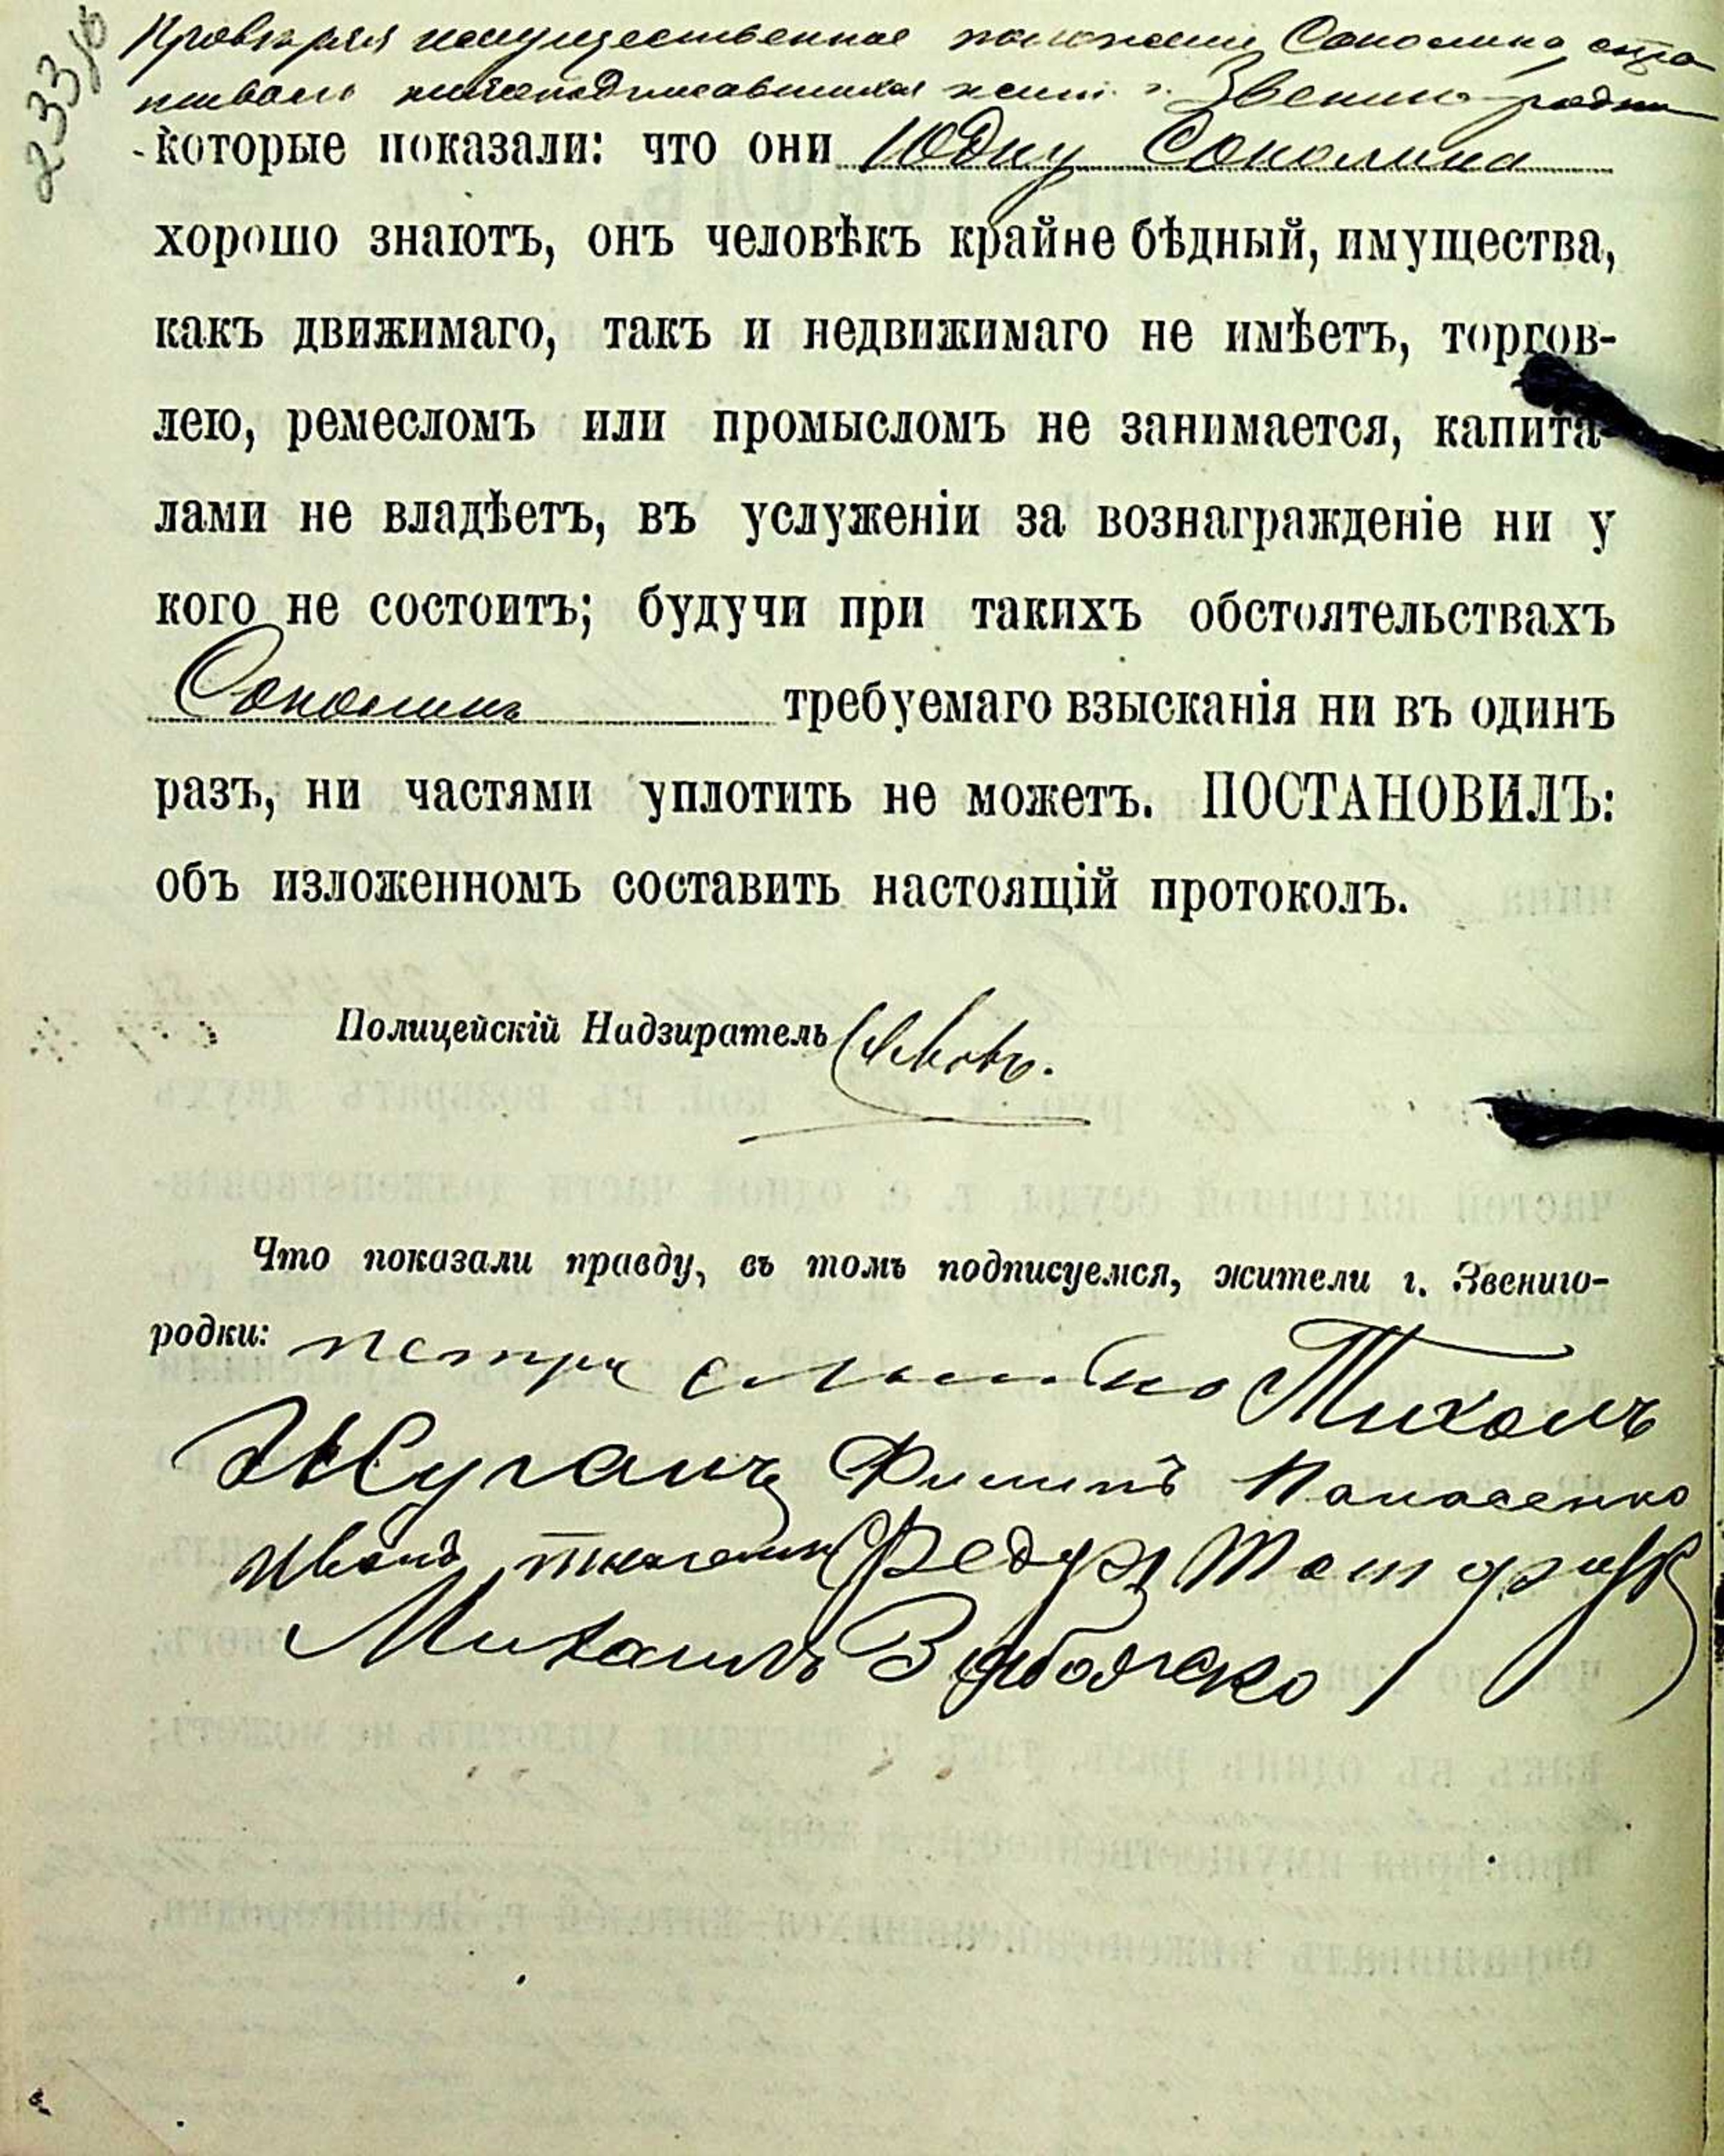 233 об
Провѣряя имущественное положеніе Соколина опра
шивалъ нижеподписавшихся жит. г. Звенигородки
которые показали: что они Юдку Соколина
хорошо знаютъ, онъ человѣкъ крайне бѣдный, имущества,
какъ движимаго, такъ и недвижимаго не имѣетъ, торгов-
лею, ремесломъ или промысломъ не занимается, капита-
лами не владѣетъ, въ услуженіи за вознагражденіе ни у
кого не состоитъ; будучи при такихъ обстоятельствахъ
Соколинъ требуемаго взысканія ни въ одинъ
разъ, ни частями уплотить не можетъ. ПОСТАНОВИЛЪ:
объ изложенномъ составить настоящій протоколъ.
Полицейскій Надзиратель
Что показали правду, въ томъ подписуемся, жители г. Звениго-
родки: петръ Тихонъ
Жуганъ Филипъ Панасенко
Иванъ Федоръ
Михаилъ